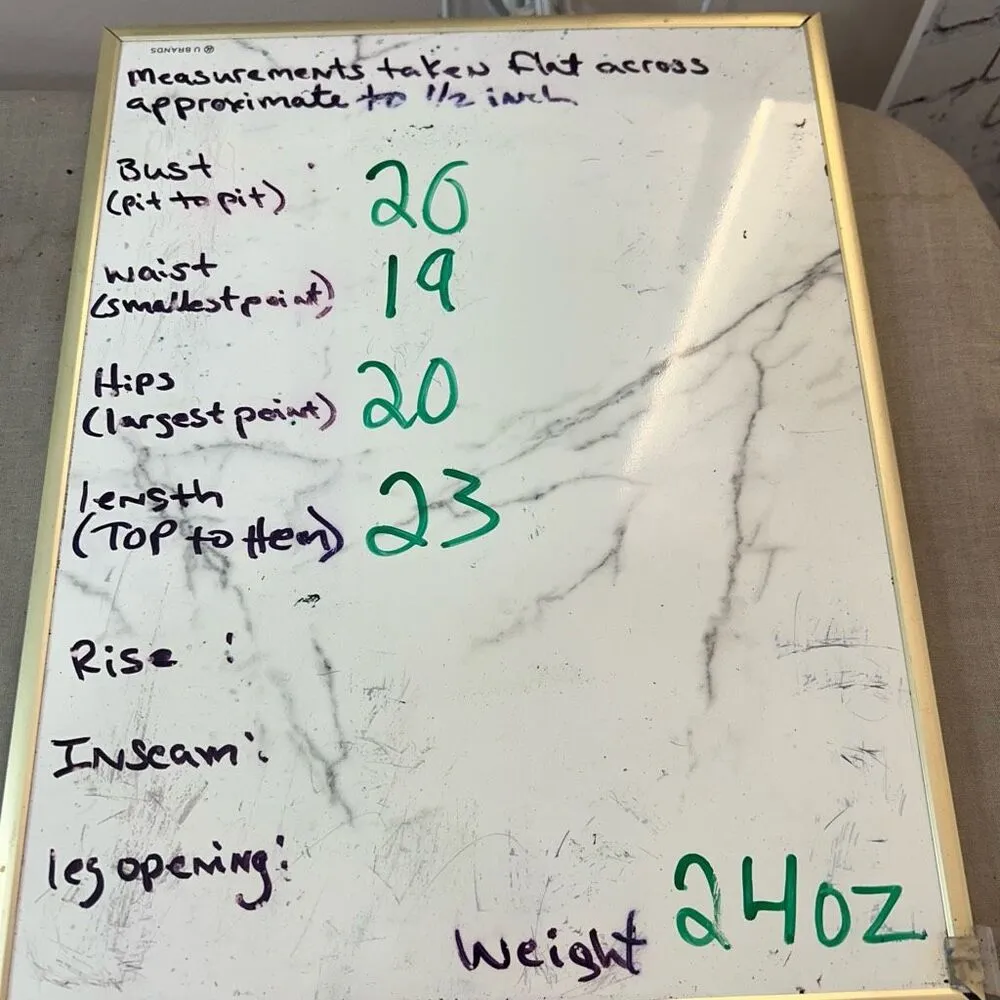 U BRANDS
Measurements taken flat across
approximate to 1/2 inch
Bust
(pit to pit)
26
waist
(smallest point)
19
Hips
(largest point)
20
length
(TOP to Hem)
23
Rise :
Inseam:
leg opening:
Weight 24oz